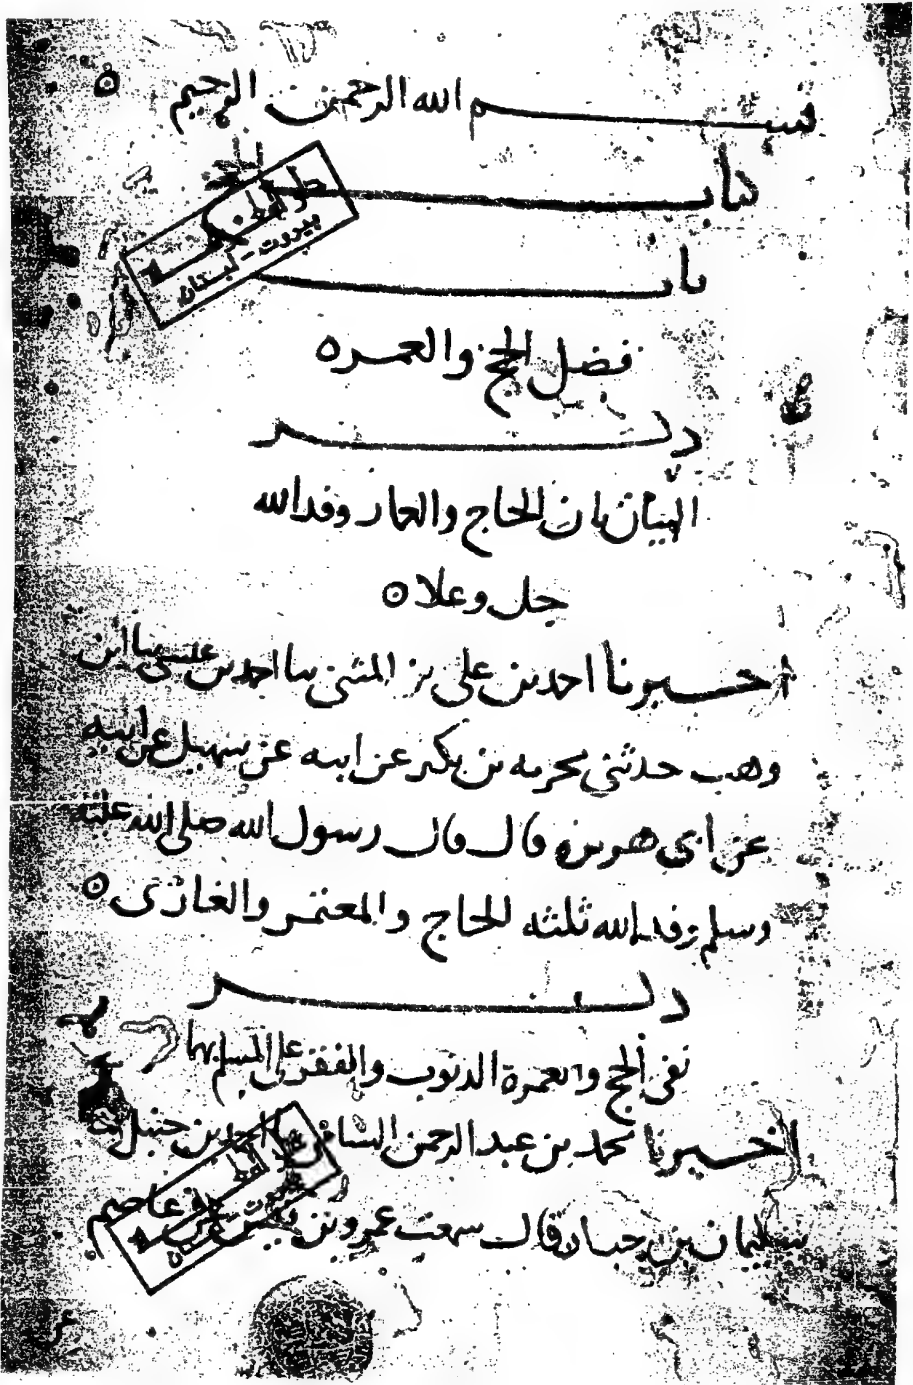 بسم الله الرحمن الرحيم
كتاب الحج
باب
فضل الحج والعمره
ذكر
البيان بان الحاج والعمار وفد الله
جل وعلا
اخبرنا احمد بن علي بن المثنى ثنا احمد بن عيسى ثنا ابن
وهب حدثني مخرمه بن بكير عن ابيه عن سهيل عن ابيه
عن ابي هريره قال قال رسول الله صلى الله عليه
وسلم وفد الله ثلثه الحاج والمعتمر والغازى
ذكر
نفى الحج والعمرة الذنوب والفقر عن المسلم بهما
اخبرنا محمد بن عبد الرحمن السامي ثنا احمد بن حنبل ثنا
سليمان بن حيان قال سمعت عمرو بن قيس عن عاصم
بيروت - لبنان